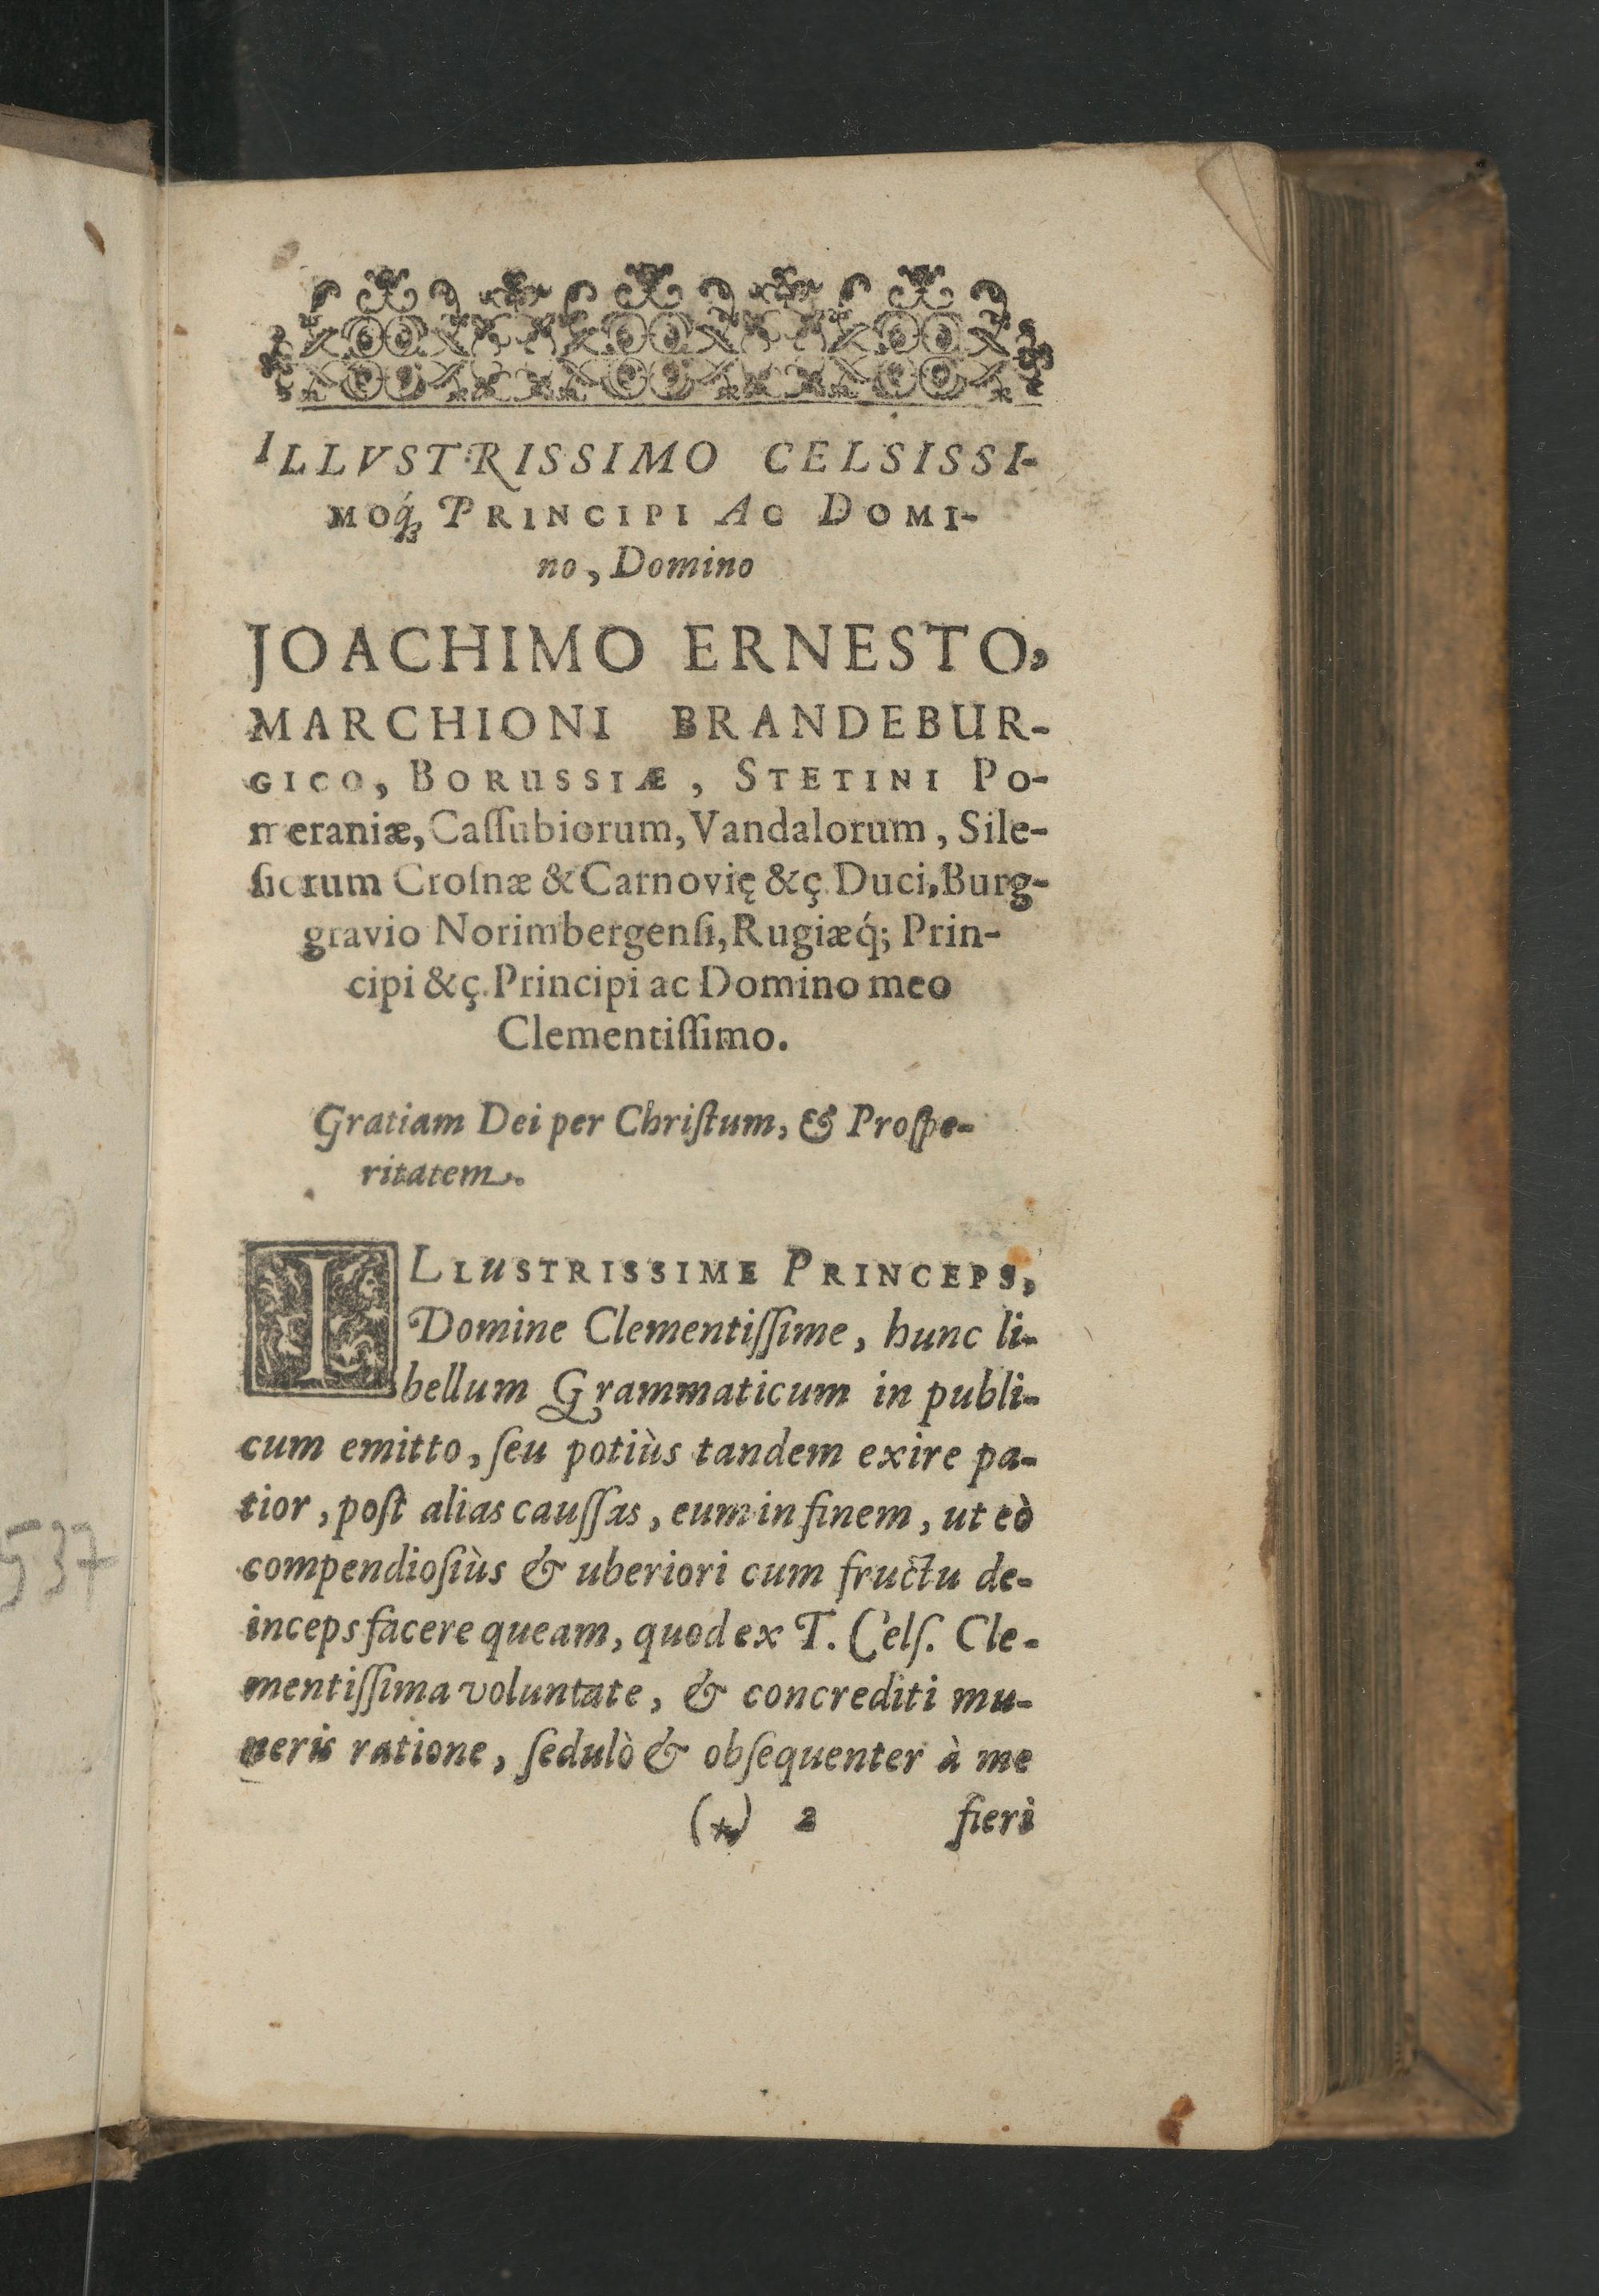 ILLVSTRISSIMO CELSISSI-
MOq́ꝫ PRINCIPI AC DOMI-
no, Domino
JOACHIMO ERNESTO,
MARCHIONI BRANDEBUR-
GICO, BORUSSIÆ, STETINI PO-
meraniæ, Caſſubiorum, Vandalorum, Sile-
ſiorum Croſnæ & Carnovię &ç. Duci, Burg-
gravio Norimbergenſi, Rugiæq́; Prin-
cipi &ç. Principi ac Domino meo
Clementiſſimo.
Gratiam Dei per Chriſtum, & Proſpe-
ritatem.
ILLUSTRISSIME PRINCEPS,
Domine Clementiſſime, hunc li-
bellum Grammaticum in publi-
cum emitto, ſeu potiùs tandem exire pa-
tior, poſt alias cauſſas, eum in finem, ut eò
compendioſiùs & uberiori cum fructu de-
inceps facere queam, quod ex T. Celſ. Cle-
mentiſſima voluntate, & concrediti mu-
neris ratione, ſedulò & obſequenter à me
(*) 2 fieri
537